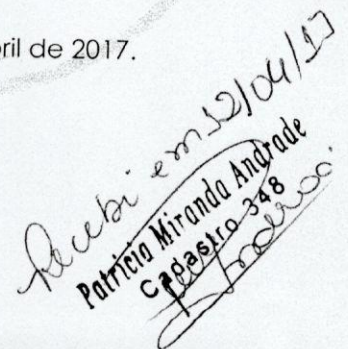 ril de 2017.
Recebi em 12/04/17
Patricia Miranda Andrade
Cadastro 348